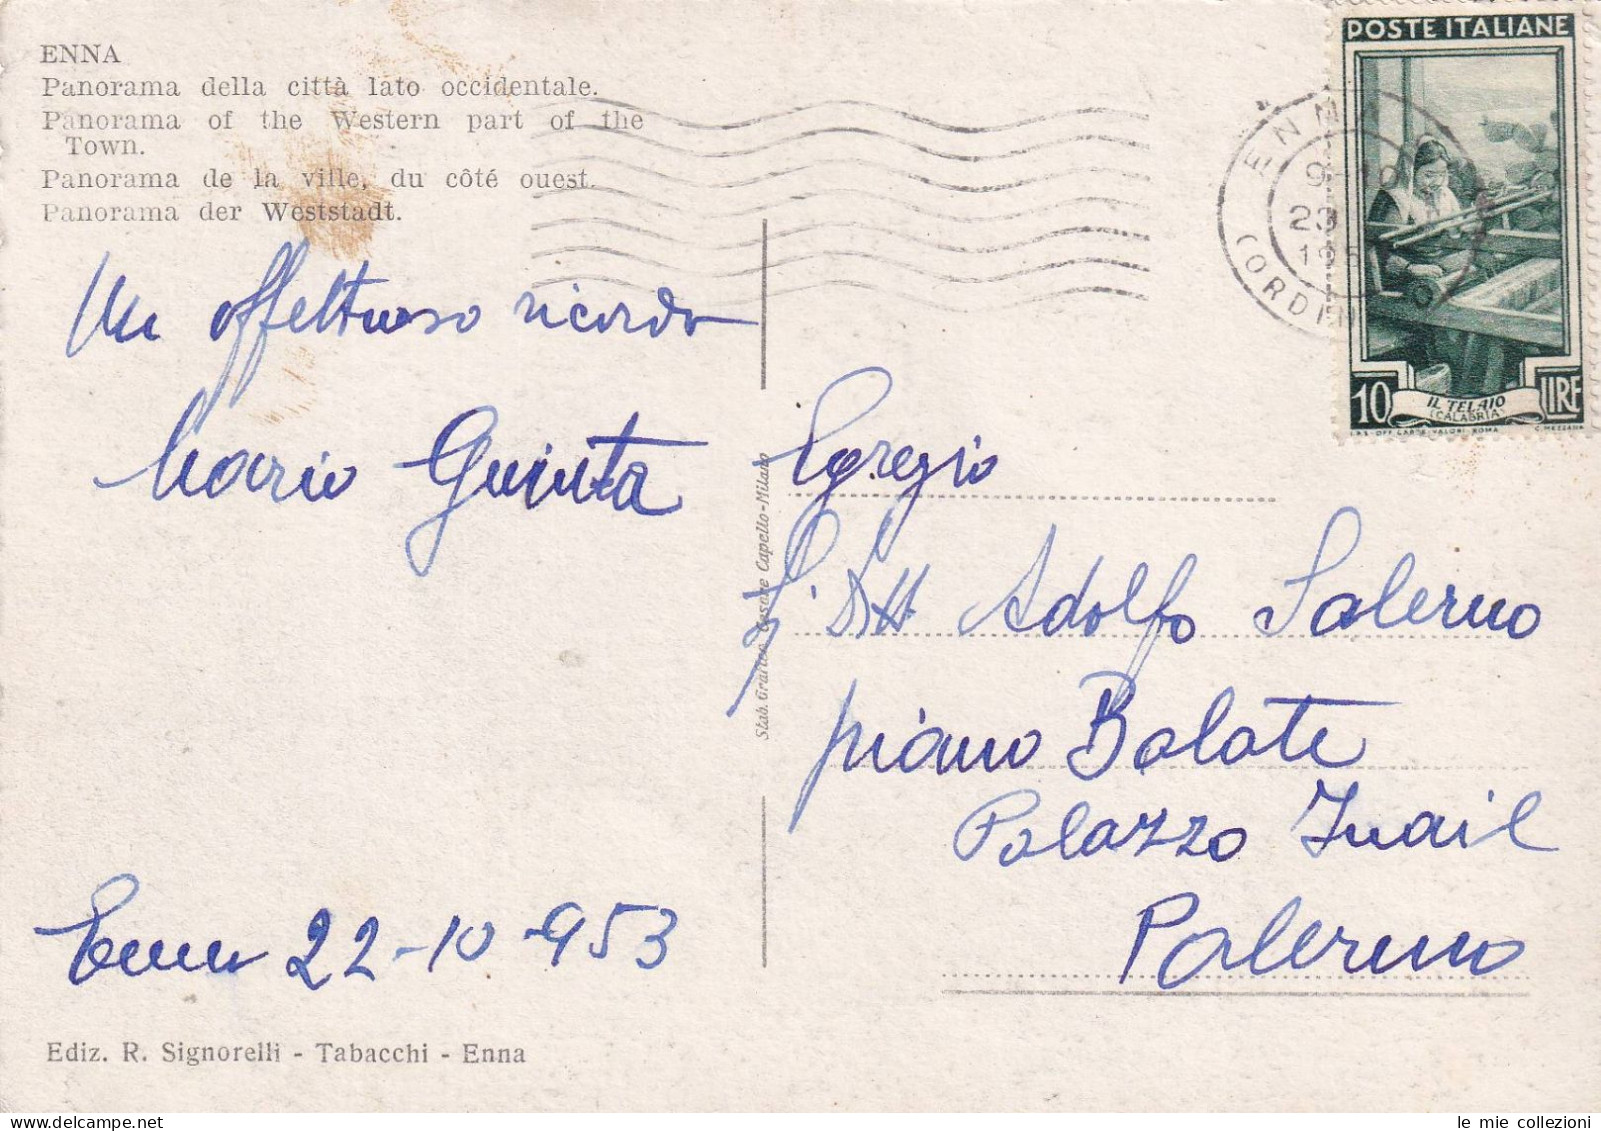 ENNA
Panorama della città lato occidentale.
Panorama of the Western part of the
Town.
Panorama de la ville, du côté ouest.
Panorama der Weststadt.
POSTE ITALIANE
10 LIRE
IL TELAIO
(CALABRIA)
I.P.S. OFF. CARTE VALORI ROMA
C. MEZZANA
ENN
23
195
(ORDIN
Un affettuoso ricordo
Mario Guinta
Stab. Grafico Cesare Capello-Milano
Egregio
Dott Adolfo Salerno
piano Balate
Palazzo Inail
Palermo
Enna 22-10-953
Ediz. R. Signorelli - Tabacchi - Enna
le mie collezioni